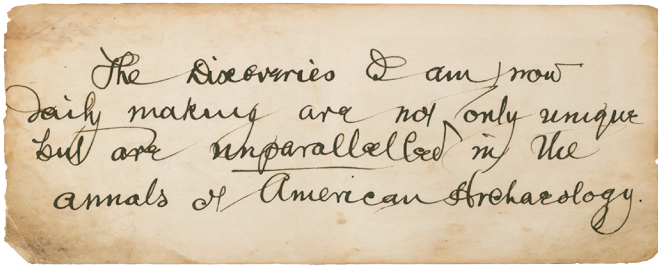 The Discoveries I am now
daily making are not only unique
but are unparallelled in the
annals of American Archaeology.